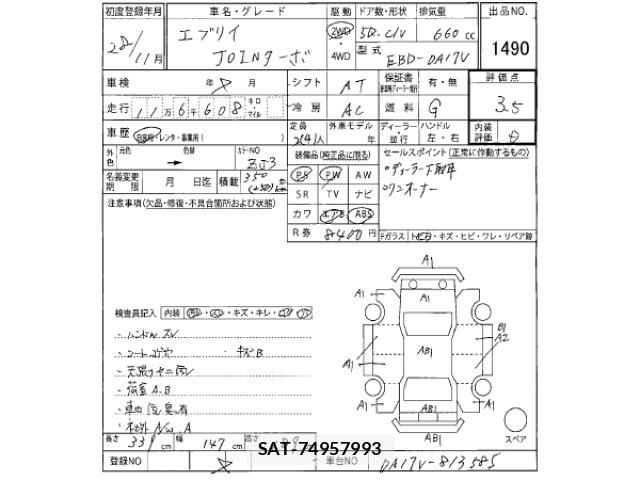 初度登録年月 車名・グレード 駆動 ドア数・形状 排気量 出品NO.
28/11月 エブリイ JOINターボ 2WD・4WD 5D. C/V 660cc 1490
型式 EBD-DA17V
車検 年 月 シフト AT 保証書 有・無 評価点
走行 11万6千608 キロ マイル 冷房 AC 燃料 G 3.5
車歴 自家用・レンタ・事業用( ) 定員 2(4)人 外車モデル 年 ディーラー 並行 ハンドル 左・右 内装評価 D
外色 元色 色替 カラーNO ZJ3
装備品(純正品に限る) セールスポイント(正常に作動するもの)
名義変更期限 月 日迄 積載 350
PS PW AW
SR TV ナビ
カワ エアB ABS
R券 8400円
・ワンオーナー
注意事項(欠品・修復・不具合箇所および状態)
Fガラス トビ石・キズ・ヒビ・ワレ・リペア跡
検査員記入 内装
・ハンドル スレ
・キズB
・荷室 A.B
A1
A1 A1 A1
B1
A2
A1 AB1
A1 AB1 A1
AB1
スペア
長さ 339cm 幅 147cm 高さ
SAT-74957993
登録NO 車台NO DA17V-813585